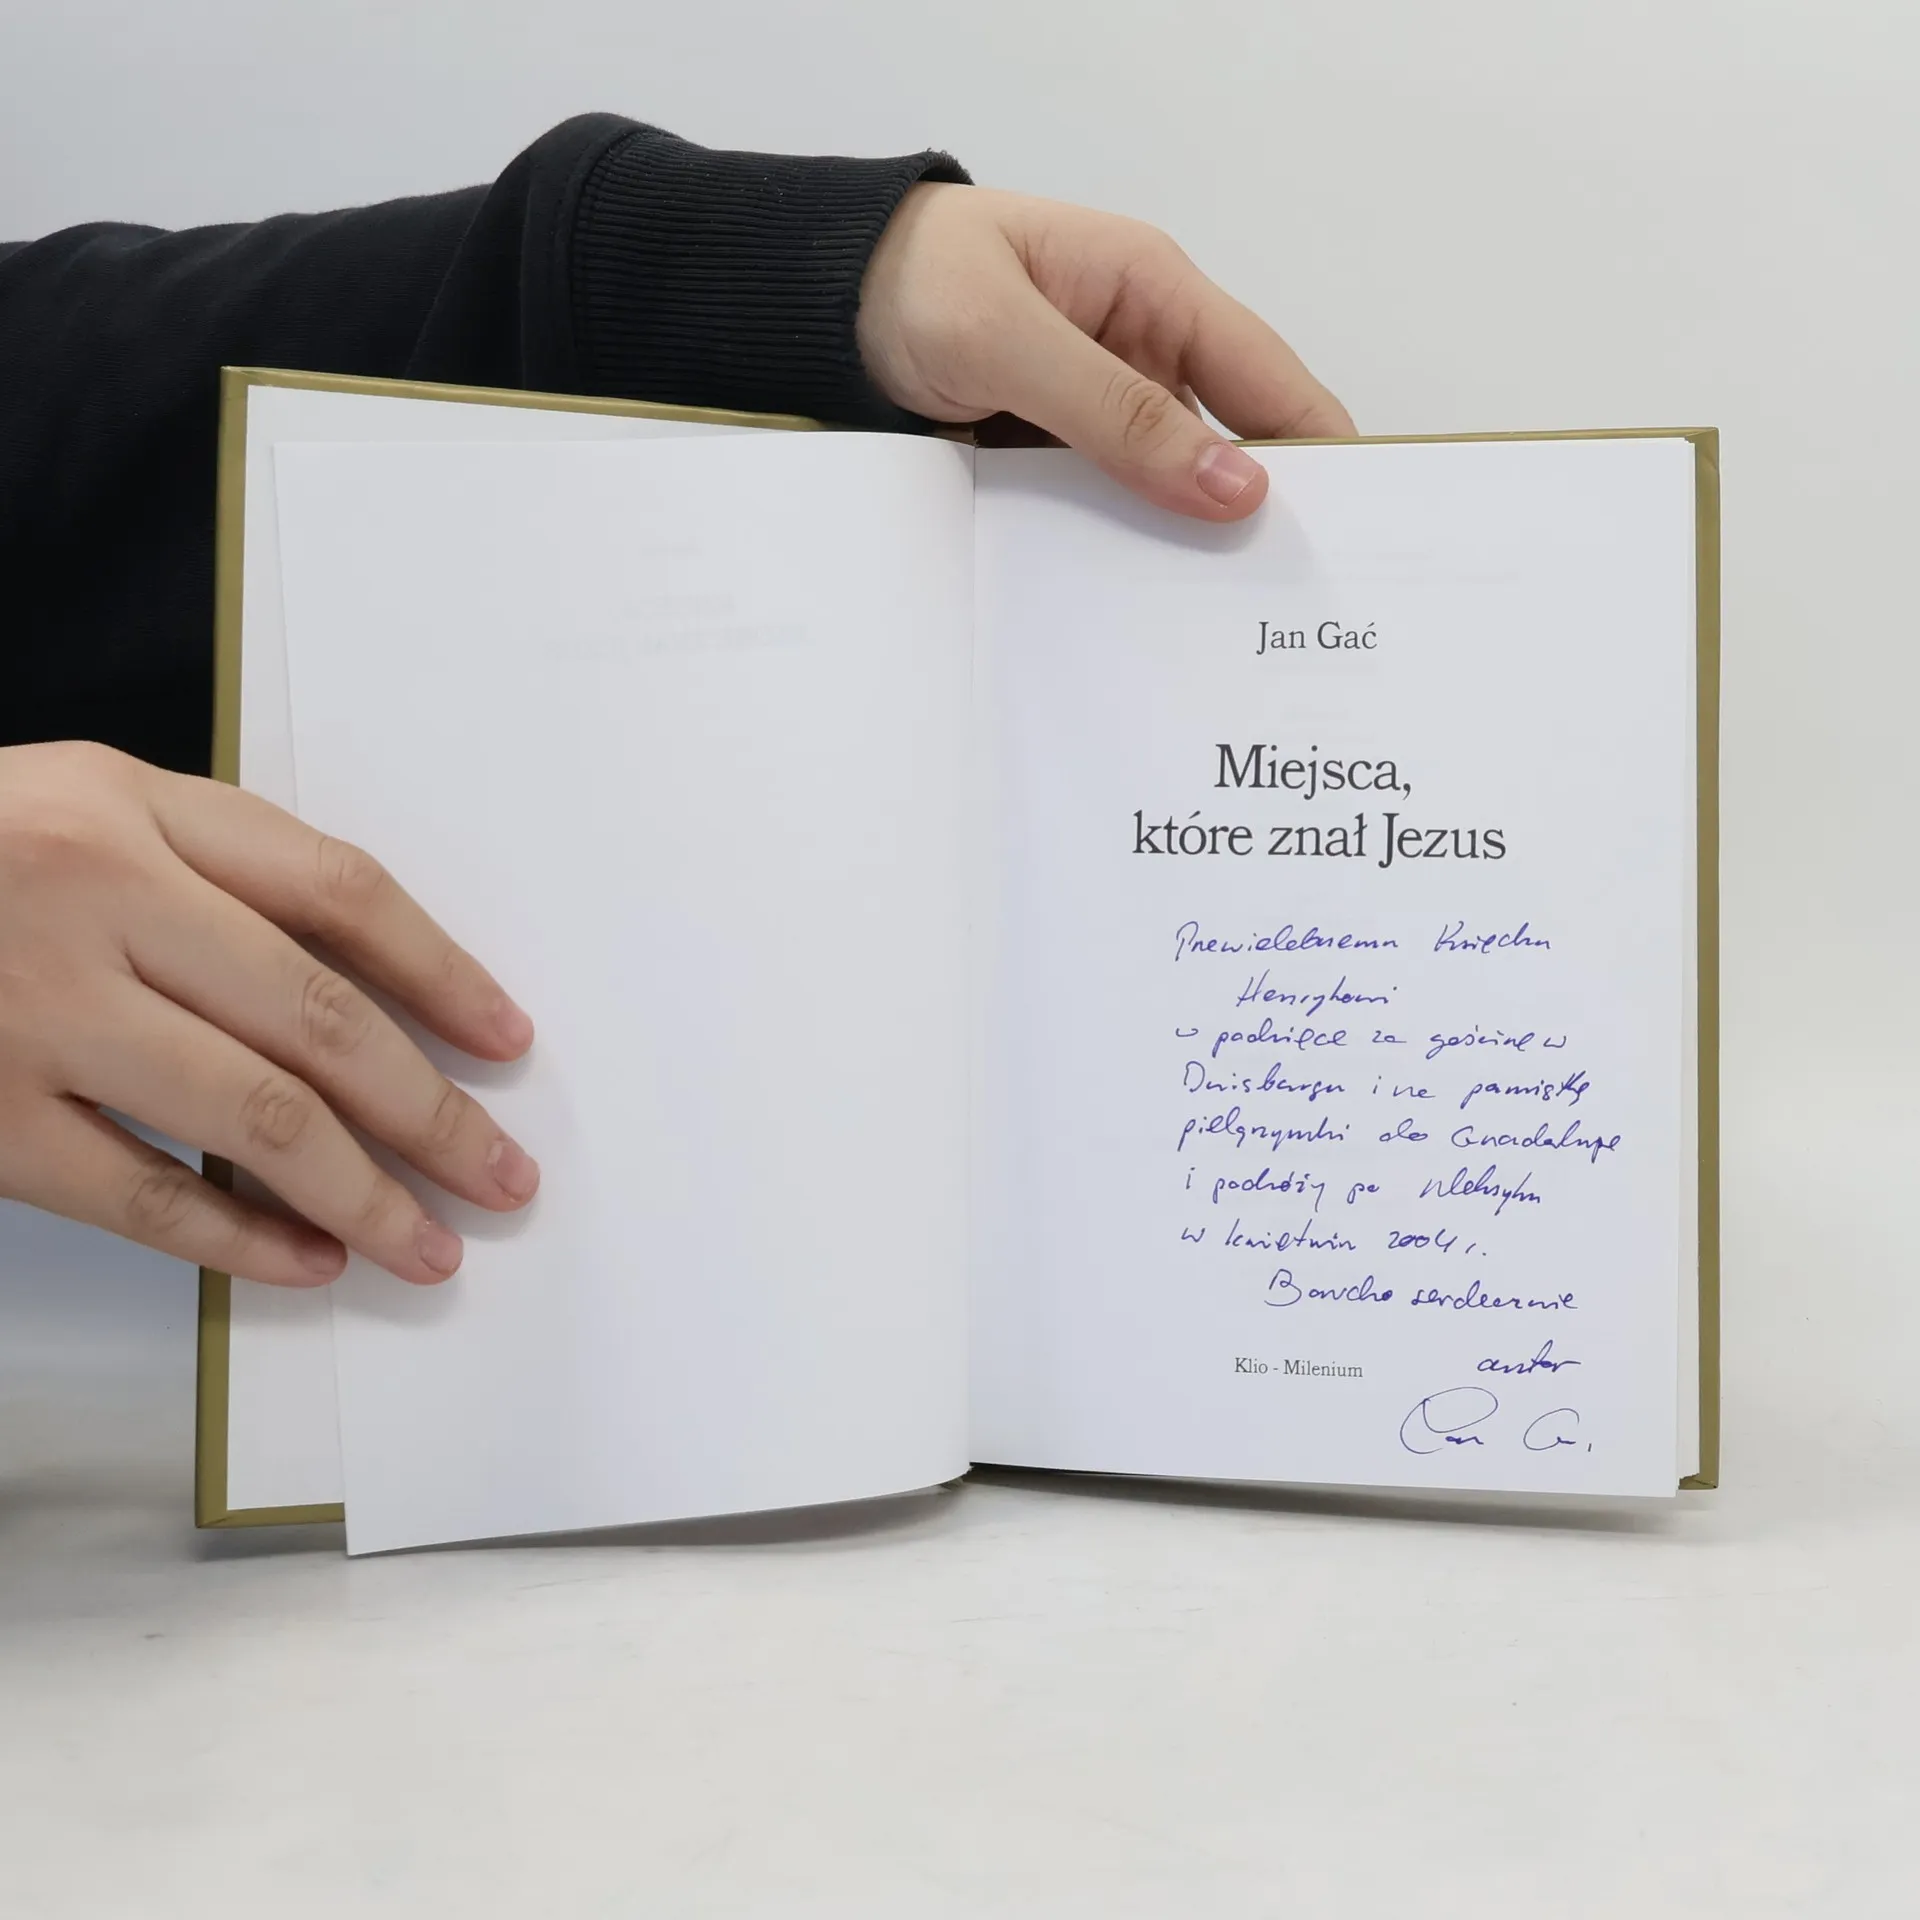 Jan Gać
Miejsca,
które znał Jezus
Przewielebnemu Księdzu
Henrykowi
w podzięce za gościnę w
Duisburgu i na pamiątkę
pielgrzymki do Guadalupe
i podróży po Meksyku
w kwietniu 2004 r.
Bardzo serdecznie
autor
Klio - Milenium